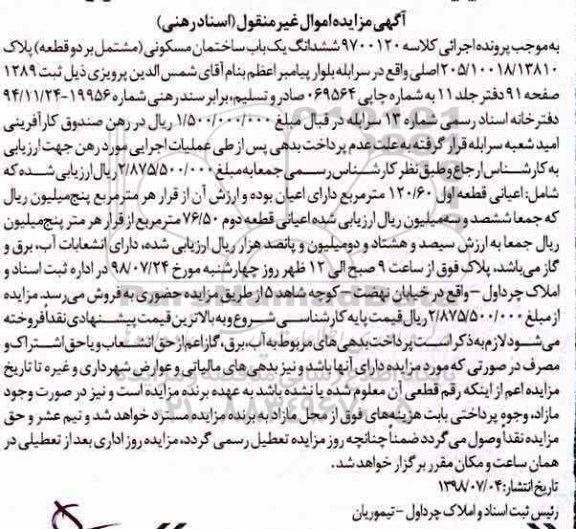 آگهی مزایده اموال غیر منقول (اسناد رهنی)
به موجب پرونده اجرائی کلاسه ۹۷۰۰۱۲۰ ششدانگ یک باب ساختمان مسکونی (مشتمل بر دو قطعه) پلاک
۲۰۵/۱۰۰۱۸/۱۳۸۱۰ اصلی واقع در سرابله بلوار پیامبر اعظم بنام آقای شمس الدین پرویزی ذیل ثبت ۱۲۸۹
صفحه ۹۱ دفتر جلد ۱۱ به شماره چاپی ۰۶۹۵۶۴ صادر و تسلیم، برابر سند رهنی شماره ۱۹۹۵۶-۹۴/۱۱/۲۴
دفترخانه اسناد رسمی شماره ۱۳ سرابله در قبال مبلغ ۱/۵۰۰/۰۰۰/۰۰۰ ریال در رهن صندوق کارآفرینی
امید شعبه سرابله قرار گرفته به علت عدم پرداخت بدهی پس از طی عملیات اجرایی مورد رهن جهت ارزیابی
به کارشناس ارجاع و طبق نظر کارشناس رسمی جمعا به مبلغ ۲/۸۷۵/۵۰۰/۰۰۰ ریال ارزیابی شده که
شامل: اعیانی قطعه اول ۱۲۰/۶۰ مترمربع دارای اعیان بوده و ارزش آن از قرار هر مترمربع پنج میلیون ریال
که جمعا ششصد و سه میلیون ریال ارزیابی شده اعیانی قطعه دوم ۷۶/۵۰ مترمربع از قرار هر متر پنج میلیون
ریال جمعا به ارزش سیصد و هشتاد و دو میلیون و پانصد هزار ریال ارزیابی شده، دارای انشعابات آب، برق و
گاز می باشد، پلاک فوق از ساعت ۹ صبح الی ۱۲ ظهر روز چهارشنبه مورخ ۹۸/۰۷/۲۴ در اداره ثبت اسناد و
املاک چرداول - واقع در خیابان نهضت - کوچه شاهد ۵ از طریق مزایده حضوری به فروش می رسد. مزایده
از مبلغ ۲/۸۷۵/۵۰۰/۰۰۰ ریال قیمت پایه کارشناسی شروع و به بالاترین قیمت پیشنهادی نقدا فروخته
می شود لازم به ذکر است پرداخت بدهی های مربوط به آب، برق، گاز اعم از حق انشعاب و یا حق اشتراک و
مصرف در صورتی که مورد مزایده دارای آنها باشد و نیز بدهی های مالیاتی و عوارض شهرداری و غیره تا تاریخ
مزایده اعم از اینکه رقم قطعی آن معلوم شده یا نشده باشد به عهده برنده مزایده است و نیز در صورت وجود
مازاد، وجوه پرداختی بابت هزینه های فوق از محل مازاد به برنده مزایده مسترد خواهد شد و نیم عشر و حق
مزایده نقدا وصول می گردد ضمنا چنانچه روز مزایده تعطیل رسمی گردد، مزایده روز اداری بعد از تعطیلی در
همان ساعت و مکان مقرر برگزار خواهد شد.
تاریخ انتشار: ۱۳۹۸/۰۷/۰۴
رئیس ثبت اسناد و املاک چرداول - تیموریان